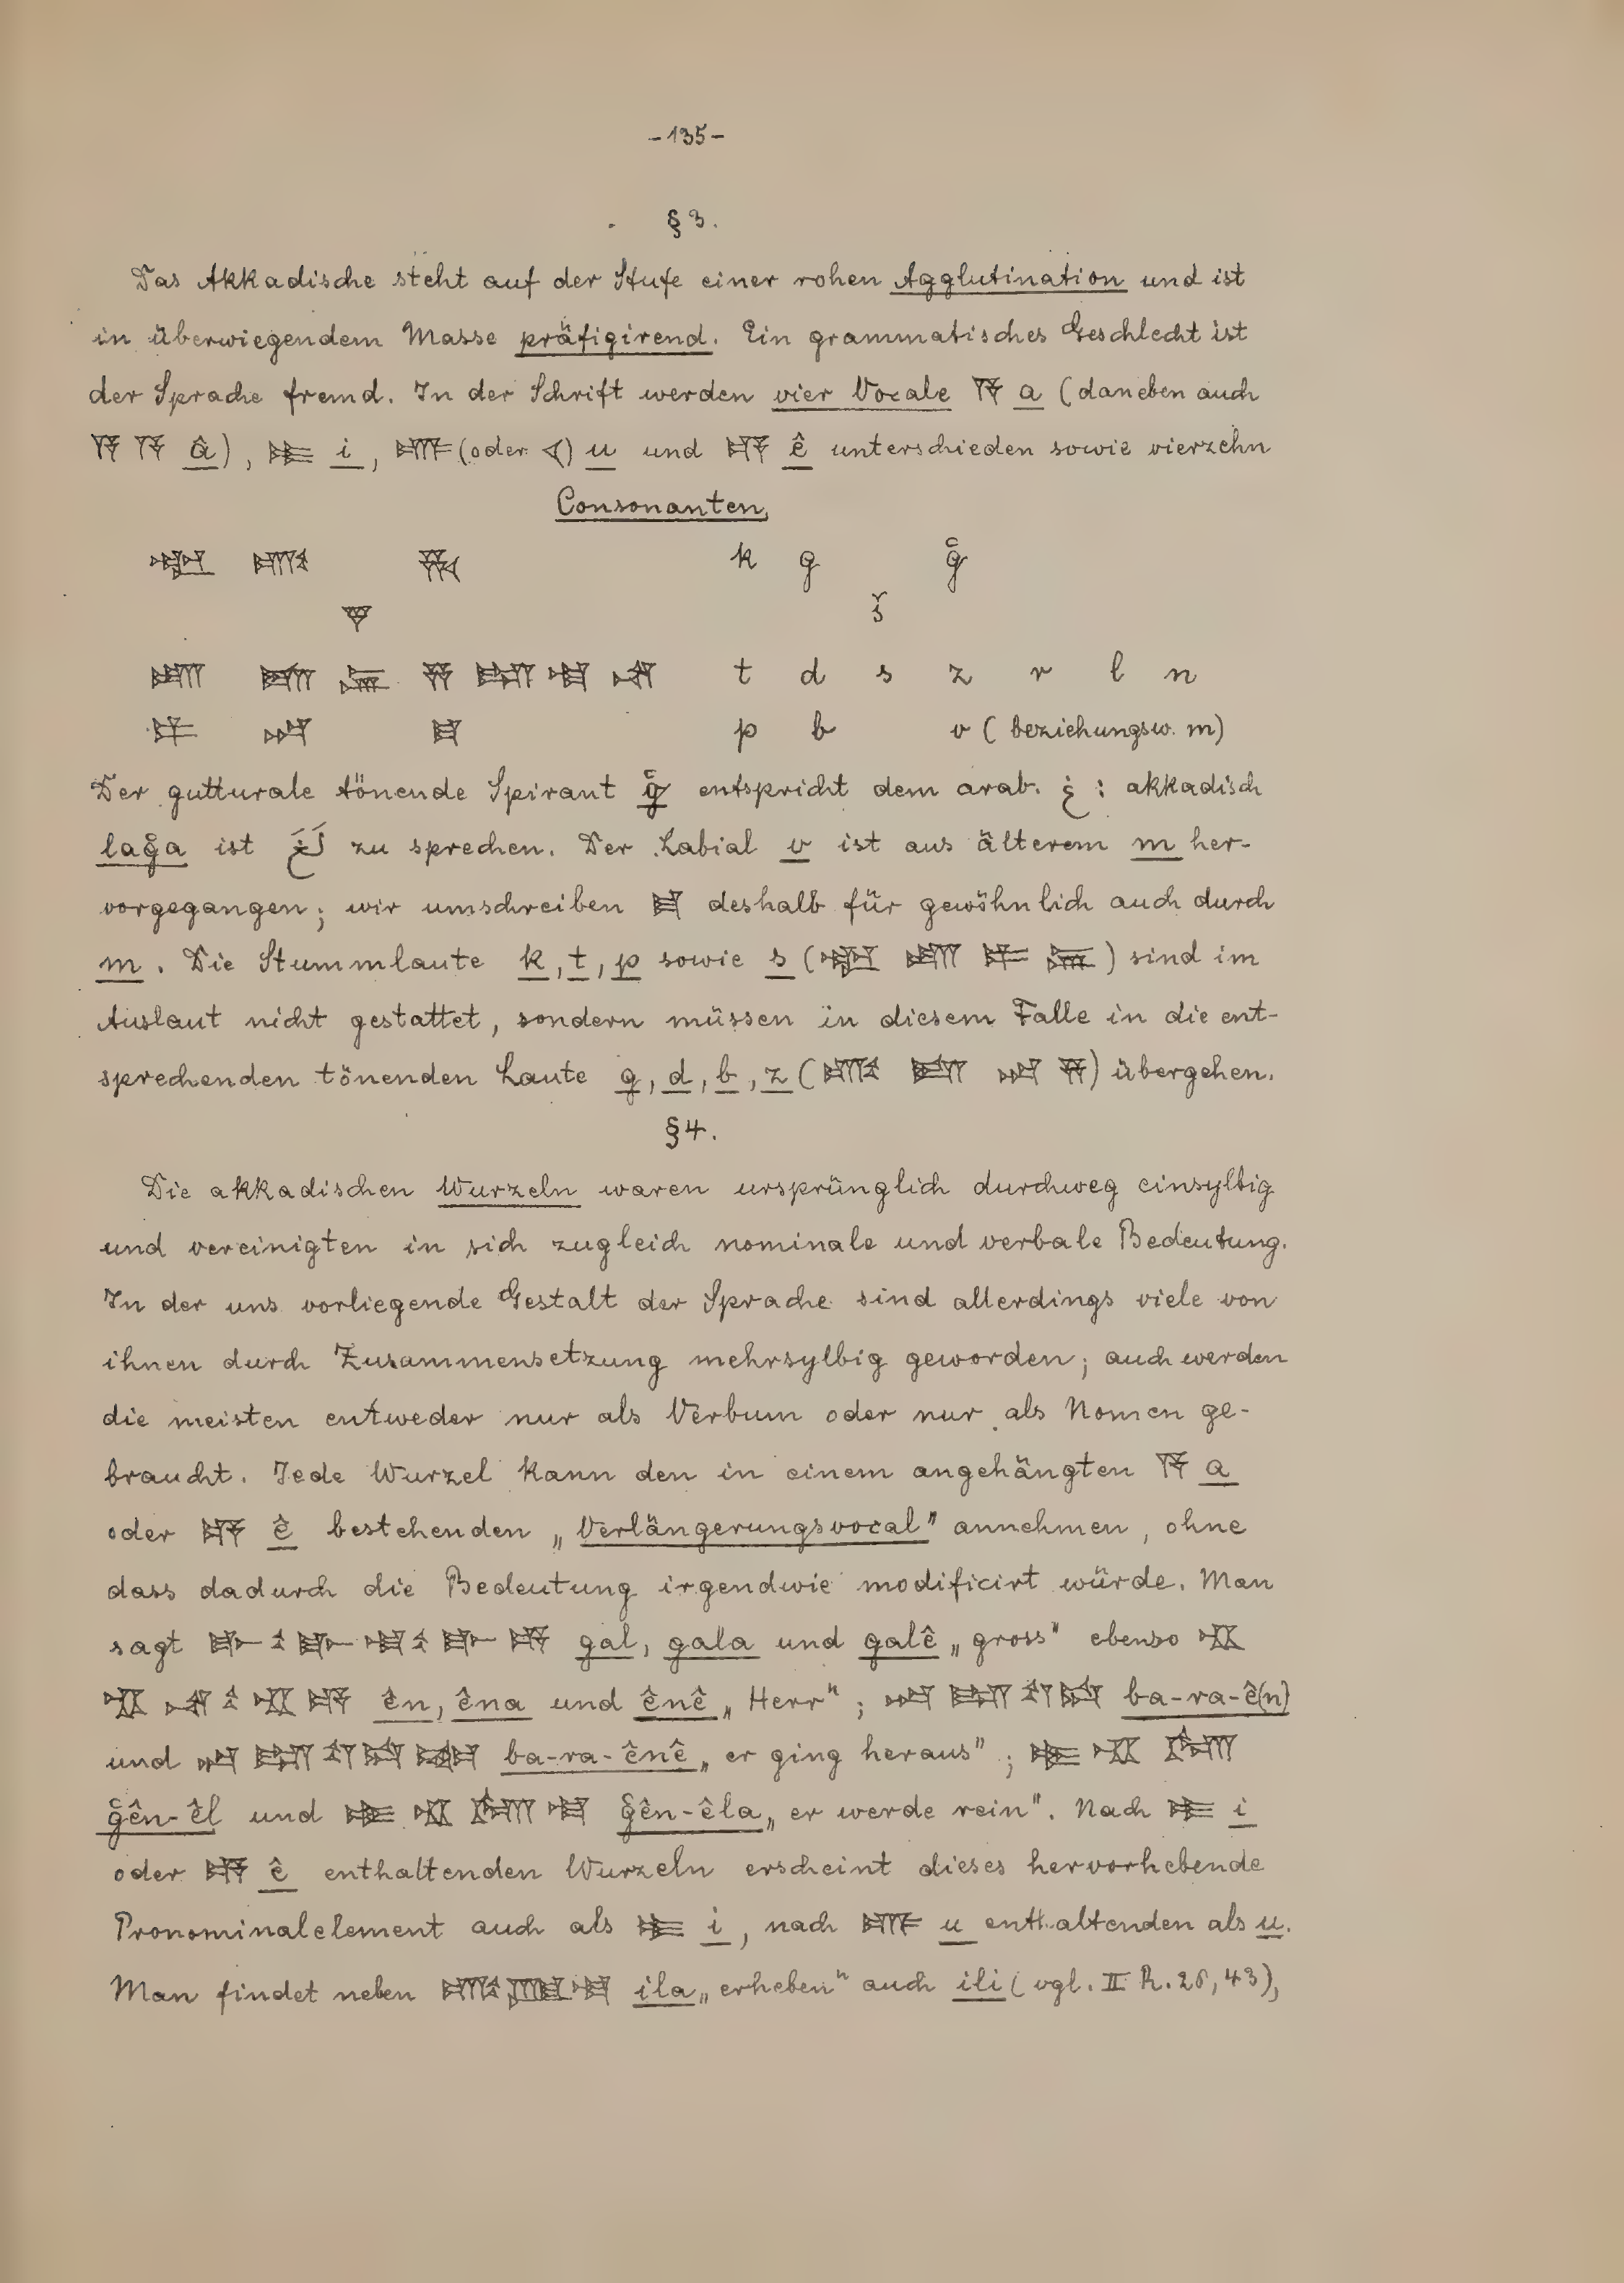 -135-
§ 3.
Das Akkadische steht auf der Stufe einer rohen Agglutination und ist
in überwiegendem Masse präfigirend. Ein grammatisches Geschlecht ist
der Sprache fremd. In der Schrift werden vier Vocale 𒀀 a (daneben auch
𒀀 𒀀 â), 𒄿 i, 𒌑 (oder 𒌋) u und 𒂊 ê unterschieden sowie vierzehn
Consonanten,
k g g̃
š
t d s z r l n
p b v (beziehungsw. m)
Der gutturale tönende Spirant g̃ entspricht dem arab. غ : akkadisch
lag̃a ist zu sprechen. Der Labial v ist aus älterem m her-
vorgegangen; wir umschreiben deshalb für gewöhnlich auch durch
m. Die Stummlaute k, t, p sowie s ( ) sind im
Auslaut nicht gestattet, sondern müssen in diesem Falle in die ent-
sprechenden tönenden Laute g, d, b, z ( ) übergehen.
§ 4.
Die akkadischen Wurzeln waren ursprünglich durchweg einsylbig
und vereinigten in sich zugleich nominale und verbale Bedeutung.
In der uns vorliegende Gestalt der Sprache sind allerdings viele von
ihnen durch Zusammensetzung mehrsylbig geworden; auch werden
die meisten entweder nur als Verbum oder nur als Nomen ge-
braucht. Jede Wurzel kann den in einem angehängten 𒀀 a
oder 𒂊 ê bestehenden „Verlängerungsvocal" annehmen, ohne
dass dadurch die Bedeutung irgendwie modificirt würde. Man
sagt gal, gala und galê „gross" ebenso
ên, êna und ênê „Herr"; ba-ra-ê(n)
und ba-ra-ênê „er ging heraus";
g̃ên-êl und g̃ên-êla „er werde rein". Nach 𒄿 i
oder 𒂊 ê enthaltenden Wurzeln erscheint dieses hervorhebende
Pronominalelement auch als 𒄿 i, nach 𒌑 u enthaltenden als u.
Man findet neben ila „erheben" auch ili (vgl. II R. 26, 43),